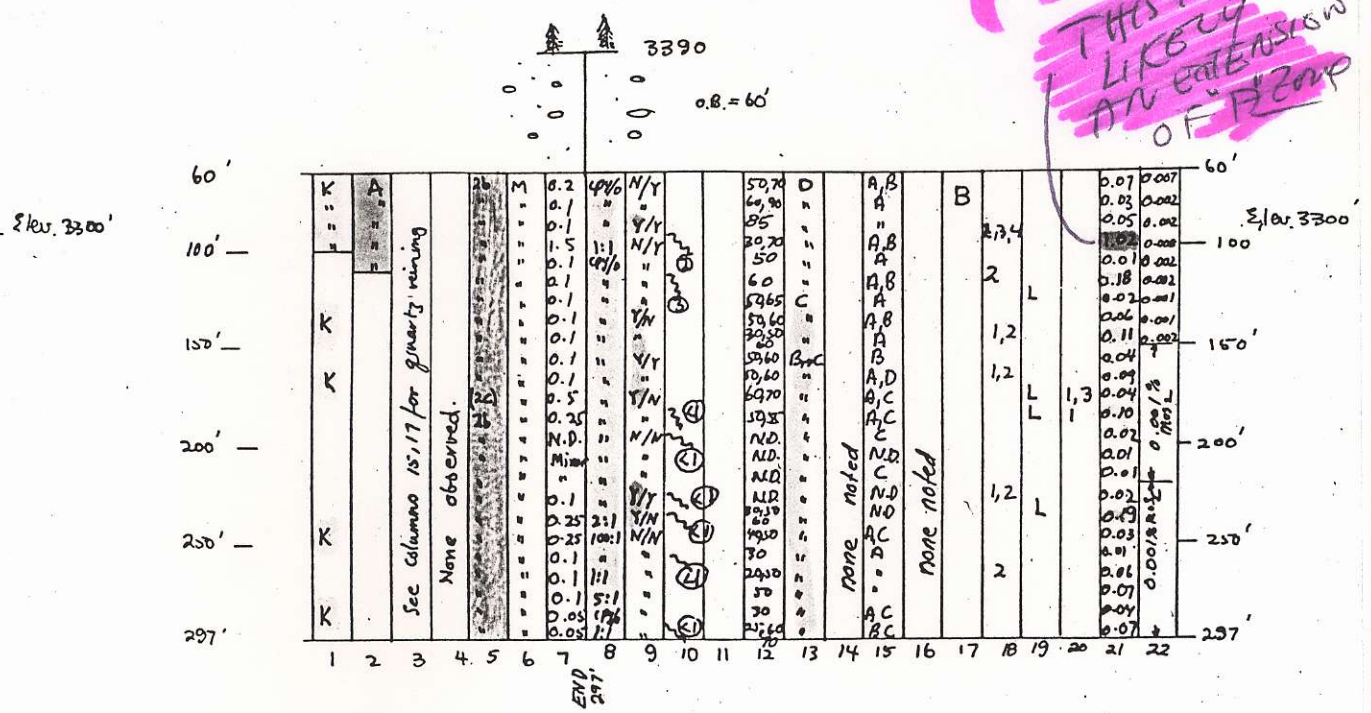 THIS
LIKELY
AN EXTENSION
OF "B" Zone
3390
O.B. = 60'
60'
60'
Elev. 3300'
Elev. 3300'
100'
100
150'
150'
200'
200'
250'
250'
297'
297'
K
"
"
"
K
K
K
K
A
"
"
"
"
See Columns 15, 17 for quartz veining
None observed.
2b
(2c)
2b
M
0.2
0.1
0.1
1.5
0.1
0.1
0.1
0.1
0.1
0.1
0.1
0.5
0.25
N.D.
Minor
"
0.1
0.25
0.25
0.1
0.1
0.1
0.05
0.05
cpy/o
"
1:1
cpy/o
2:1
100:1
1:1
5:1
1:1
N/Y
"
Y/Y
N/Y
"
Y/N
"
Y/Y
Y/N
N/N
Y/Y
Y/N
N/N
<1
<1
<1
<1
<1
50,70
60,90
85
30,70
50
60
50,65
50,60
30,50
60
50,60
50,60
60,70
N.D.
N.D.
N.D.
N.D.
30,50
60
40,50
30
20,50
50
30
25,60
70
D
"
C
"
B→C
"
none noted
A,B
A
"
A,B
A
A,B
A
A,B
A
B
A,D
A,C
A,C
C
N.D
C
N.D
N.D
A,C
D
"
"
A,C
B,C
none noted
B
2,3,4
2
1,2
1,2
1,2
2
L
L
L
L
1,3
1
0.07
0.03
0.05
1.02
0.01
0.18
0.02
0.06
0.11
0.04
0.09
0.04
0.10
0.02
0.01
0.01
0.02
0.19
0.03
0.01
0.06
0.07
0.04
0.07
0.007
0.002
0.002
0.008
0.002
0.002
0.001
0.001
0.002
0.001%
MoS2
1 2 3 4. 5 6 7 8 9 10 11 12 13 14 15 16 17 18 19 20 21 22
END
297'